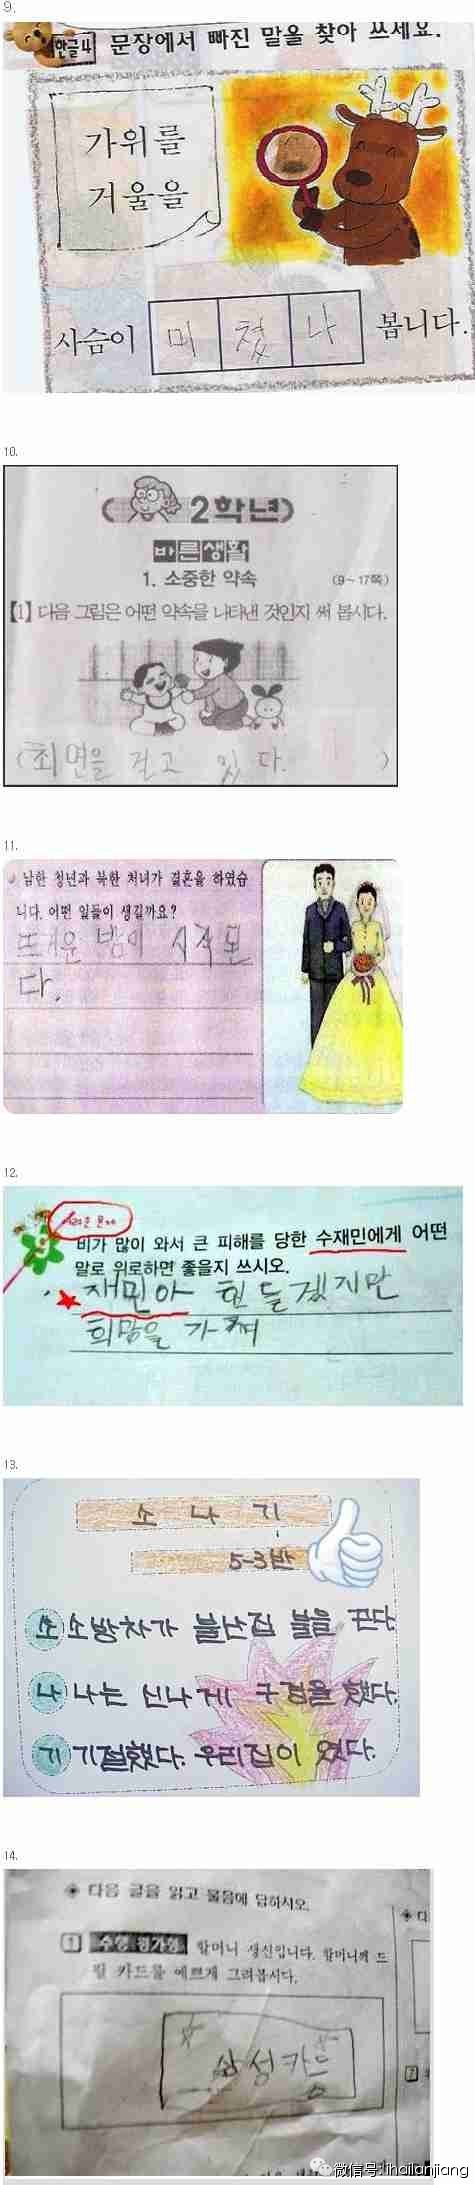 9.
한글 4 문장에서 빠진 말을 찾아 쓰세요.
가위를
거울을
사슴이 미 쳤 나 봅니다.
10.
2학년
바른생활
1. 소중한 약속 (9~17쪽)
【1】 다음 그림은 어떤 약속을 나타낸 것인지 써 봅시다.
(최면을 걸고 있다. )
11.
남한 청년과 북한 처녀가 결혼을 하였습
니다. 어떤 일들이 생길까요?
뜨거운 밤이 시작된
다.
12.
비가 많이 와서 큰 피해를 당한 수재민에게 어떤
말로 위로하면 좋을지 쓰시오.
재민아 힘들겠지만
희망을 가져
13.
소 나 기
5-3반
소 소방차가 불난집 불을 끈다.
나 나는 신나게 구경을 했다.
기 기절했다. 우리집이 였다.
14.
◈ 다음 글을 읽고 물음에 답하시오.
1 수행 평가형 할머니 생신입니다. 할머니께 드
릴 카드를 예쁘게 그려봅시다.
삼성카드
◈ 다
2
微信号: ihailanjiang